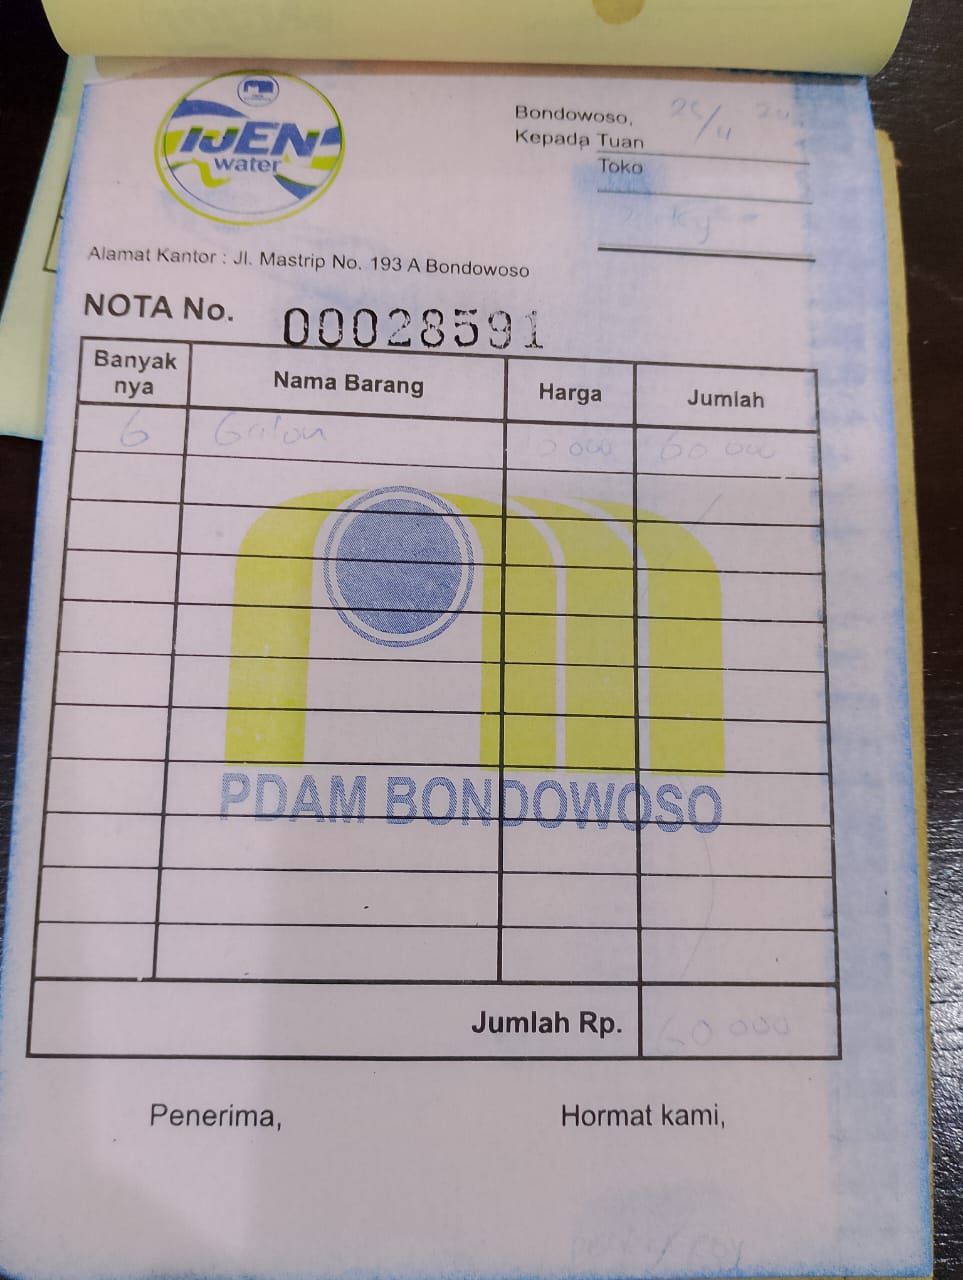 IJEN
water
Bondowoso, 25/4
Kepada Tuan
Toko
Alamat Kantor : Jl. Mastrip No. 193 A Bondowoso
NOTA No. 00028591
Banyak nya Nama Barang Harga Jumlah
6 Galon 10 000 60 000
PDAM BONDOWOSO
Jumlah Rp. 60 000
Penerima, Hormat kami,